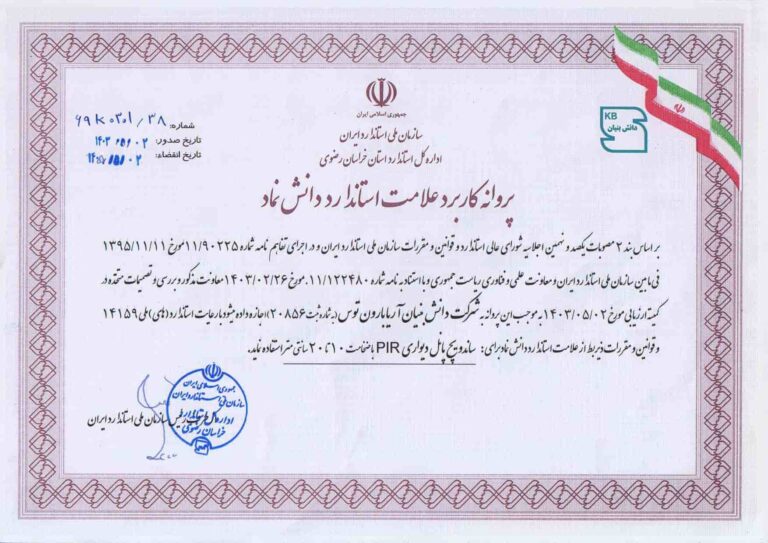 جمهوری اسلامی ایران
سازمان ملی استاندارد ایران
اداره کل استاندارد استان خراسان رضوی
KB
دانش بنیان
شماره:
تاریخ صدور: ۱۴۰۳/۰۵/۰۲
تاریخ انقضاء:
پروانه کاربرد علامت استاندارد دانش نماد
بر اساس بند ۲ مصوبات یکصد و نهمین اجلاسیه شورای عالی استاندارد و قوانین و مقررات سازمان ملی استاندارد ایران و در اجرای تفاهم نامه شماره ۱۱/۹۰۲۲۵مورخ ۱۳۹۵/۱۱/۱۱
فی مابین سازمان ملی استاندارد ایران و معاونت علمی و فناوری ریاست جمهوری و با استناد به نامه شماره ۱۱/۱۲۲۴۸۰.مورخ ۱۴۰۳/۰۲/۲۶معاونت مذکور و بررسی و تصمیمات متخذه در
کمیته ارزیابی مورخ ۱۴۰۳/۰۵/۰۲.به موجب این پروانه به شرکت دانش بنیان آریا بارون توس (به شماره ثبت۲۰۸۵۶)اجازه داده میشود با رعایت استاندارد(های) ملی ۱۴۱۵۹
و قوانین و مقررات ذیربط از علامت استاندارد دانش نماد برای: ساندویچ پانل دیواری PIR با ضخامت ۱۰ تا ۲۰ سانتی متر استفاده نماید.
جمهوری اسلامی ایران
سازمان ملی استاندارد ایران
اداره کل استاندارد
خراسان رضوی
رئیس سازمان ملی استاندارد ایران